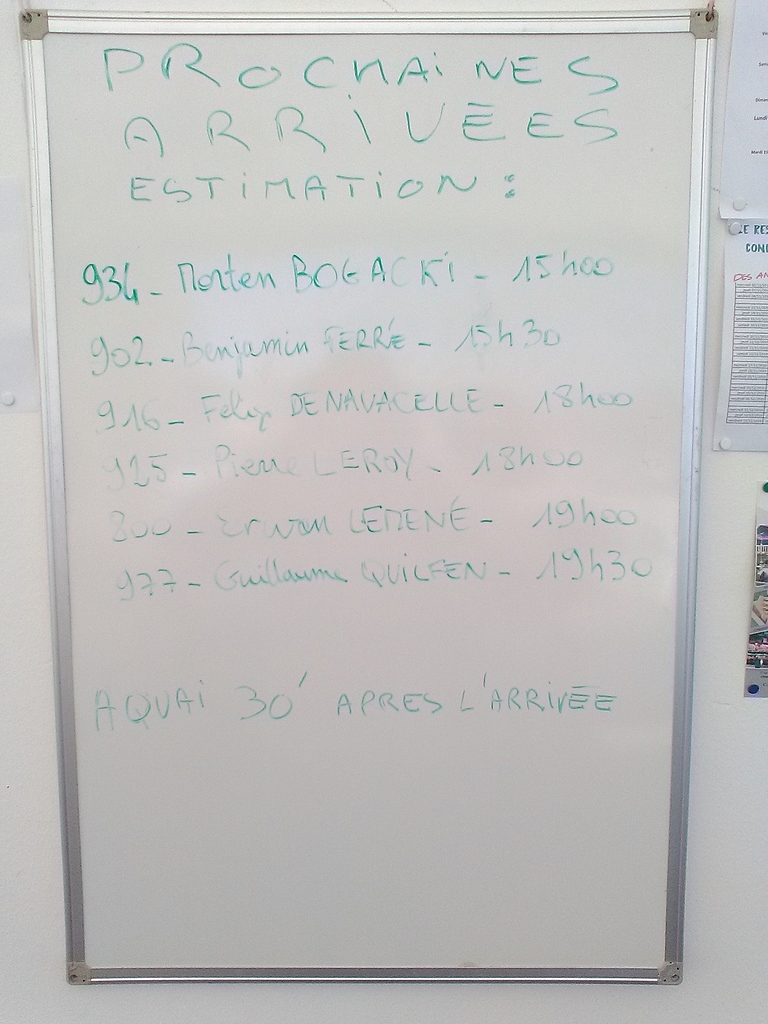 PROCHAiNES
ARRiVÉES
ESTiMATiON :
934 - Morten BOGACKi - 15h00
902 - Benjamin FERRÉ - 15h30
916 - Felip DE NAVACELLE - 18h00
925 - Pierre LEROY - 18h00
800 - Erwan LEMENÉ - 19h00
977 - Guillaume QUILFEN - 19h30
A QUAi 30' APRES L'ARRiVÉE
CE RES
COND
DES AN